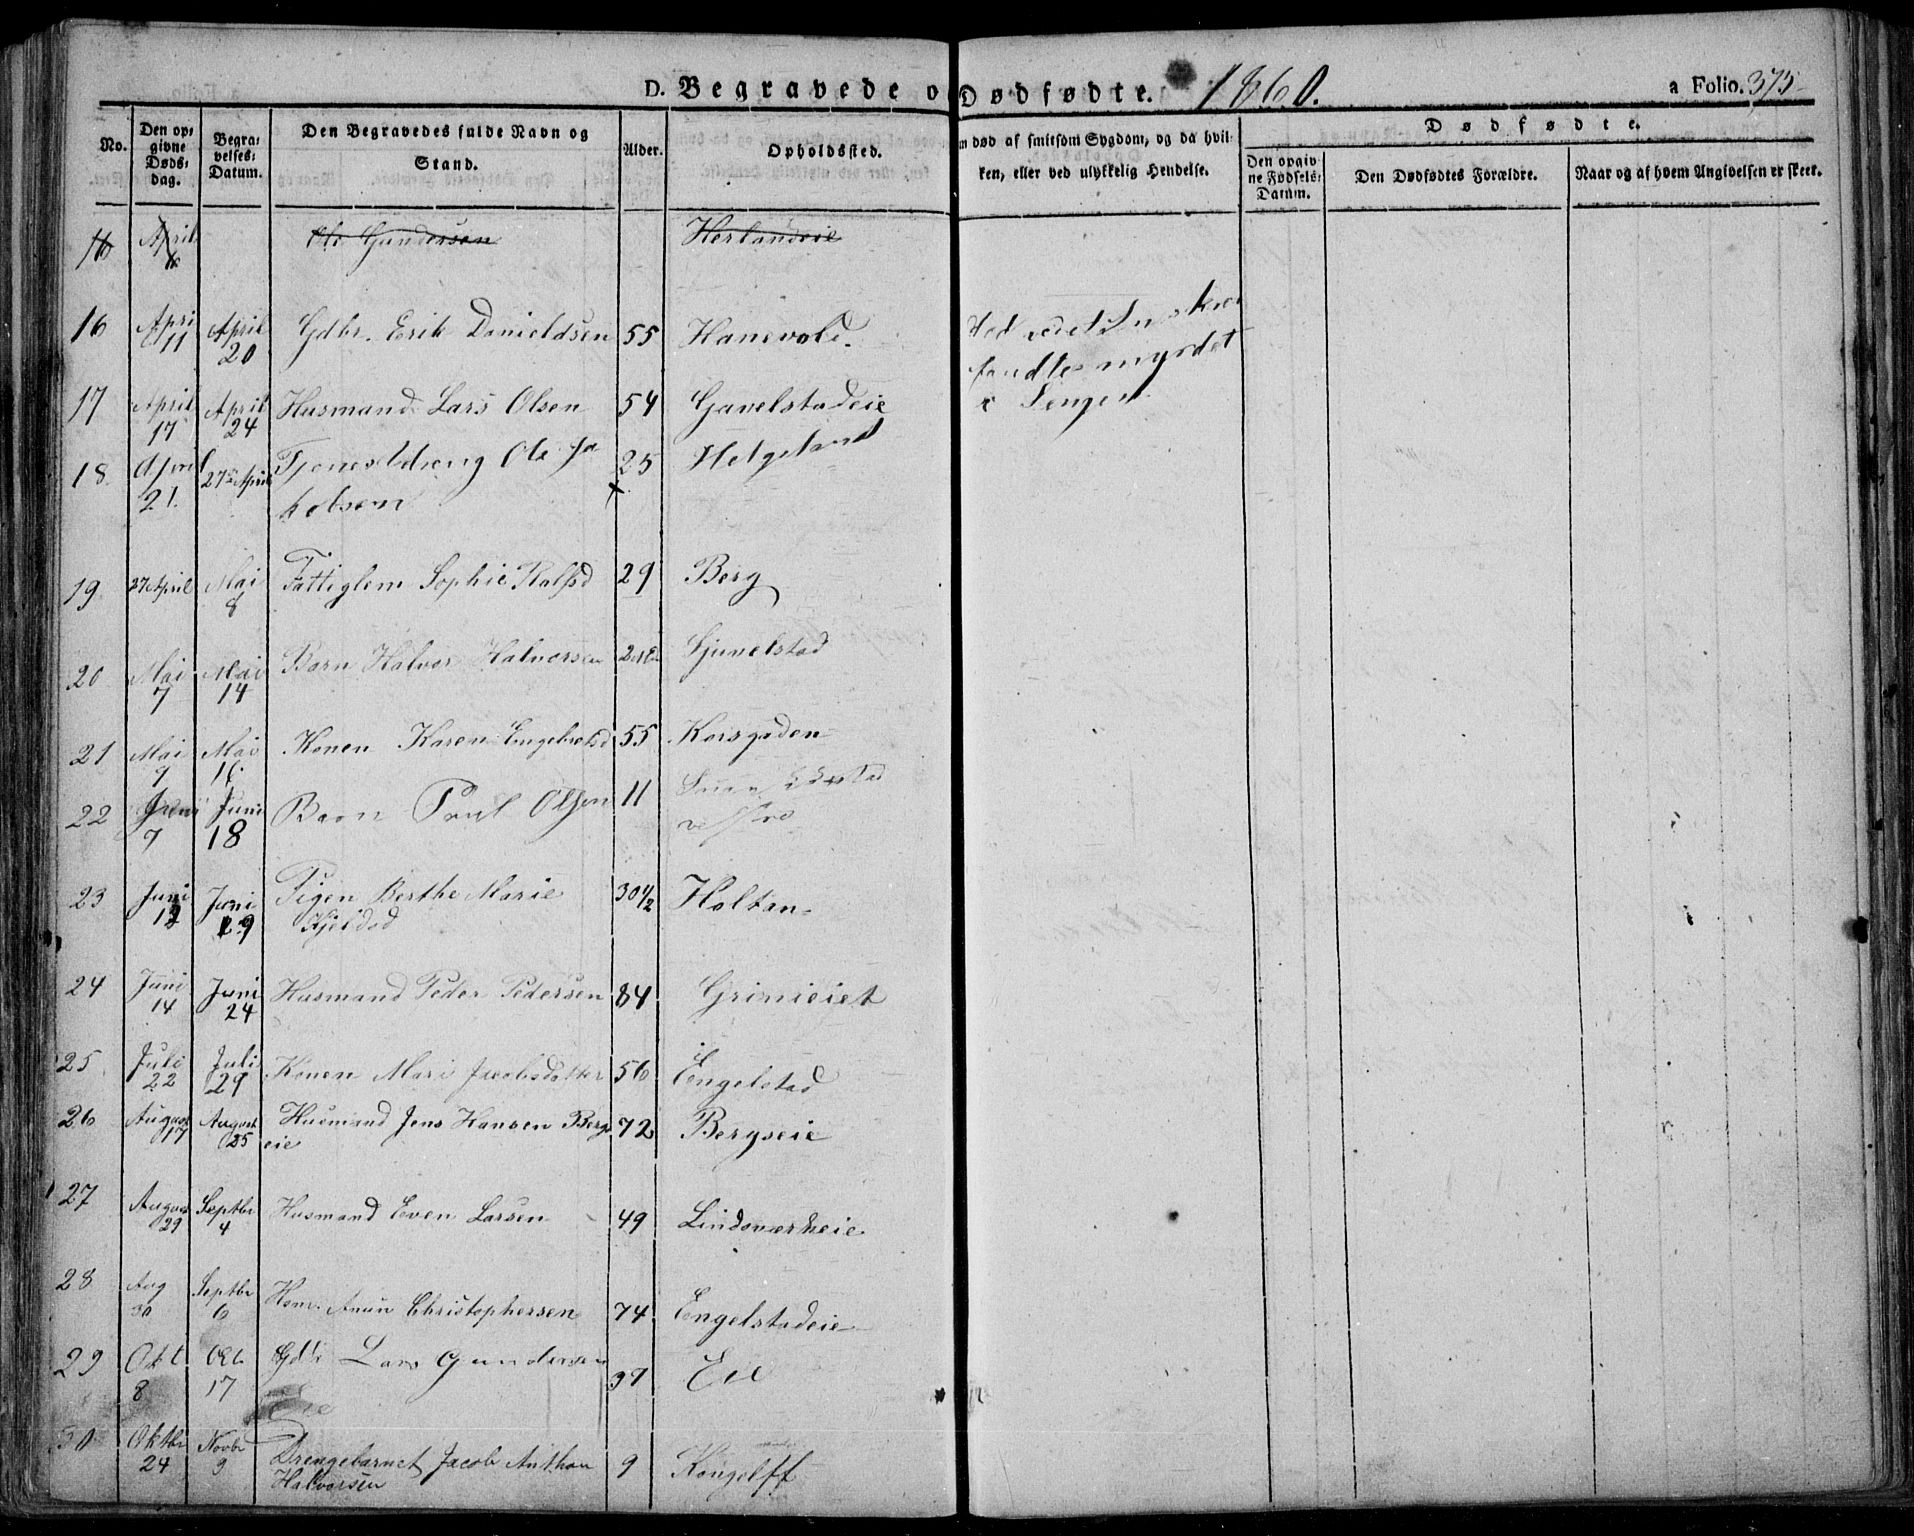 D. Begravede o Dødfødte. 1860. a Folio. 375
No. Den opgivne Dødsdag. Begravelses-Datum. Den Begravedes fulde Navn og Stand. Alder. Opholdssted. m død af smitsom Sygdom, og da hvilken, eller ved ulykkelig Hendelse. Dødfødte.
Den opgivne Fødsels-Datum. Den Dødfødtes Forældre. Naar og af hvem Angivelsen er skeet.
16 April Ole Gundersen Herlandeie
16 April 11 April 20 Gdbr. Erik Danieldsen 55 Hanevold.
fandtes myrdet
i Sengen
17 April 17 April 24 Husmand Lars Olsen 54 Gavelstadeie
18 April 21. 27de April Tjenestdreng Ole Ja 25 Helgeland
kobsen
19 27 April Mai 8 Fattiglem Sophie 29 Berg
20 Mai 7 Mai 14 Barn Halvor Halvorsen Gjuvelstad
21 Mai 9 Mai 16 Konen Karen Engebretsd 55 Korsgaden
22 Juni 7 Juni 18 Barn Poul Olsen 11
23 Juni 12 Juni 19 Pigen Berthe Marie 30½ Holtan
Kjeldsd
24 Juni 14 Juni 24 Husmand Peder Pedersen 84 Grimieiet
25 Juli 22 Juli 29 Konen Mari Jacobsdatter 56 Engelstad
26 August 17 August 25 Husmand Jens Hansen Bergs 72 Bergseie
eie
27 August 29 Septbr 4 Husmand Even Larsen 49 Lindsværkeie
28 Aug 30 Septbr 6 Christophersen 74 Engelstadeie
29 Okt 8 Okt. 17 Lars Gundersen 39 Eie
30 Oktbr 24 Novbr 9 Drengebarnet Jacob Anthon 9 Kongelff
Halvorsen